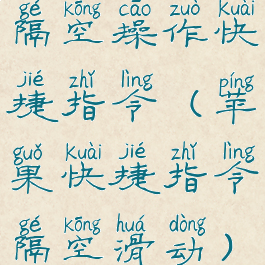 gé kōng cāo zuò kuài
隔空操作快
jié zhǐ lìng píng
捷指令（苹
guǒ kuài jié zhǐ lìng
果快捷指令
gé kōng huá dòng
隔空滑动）